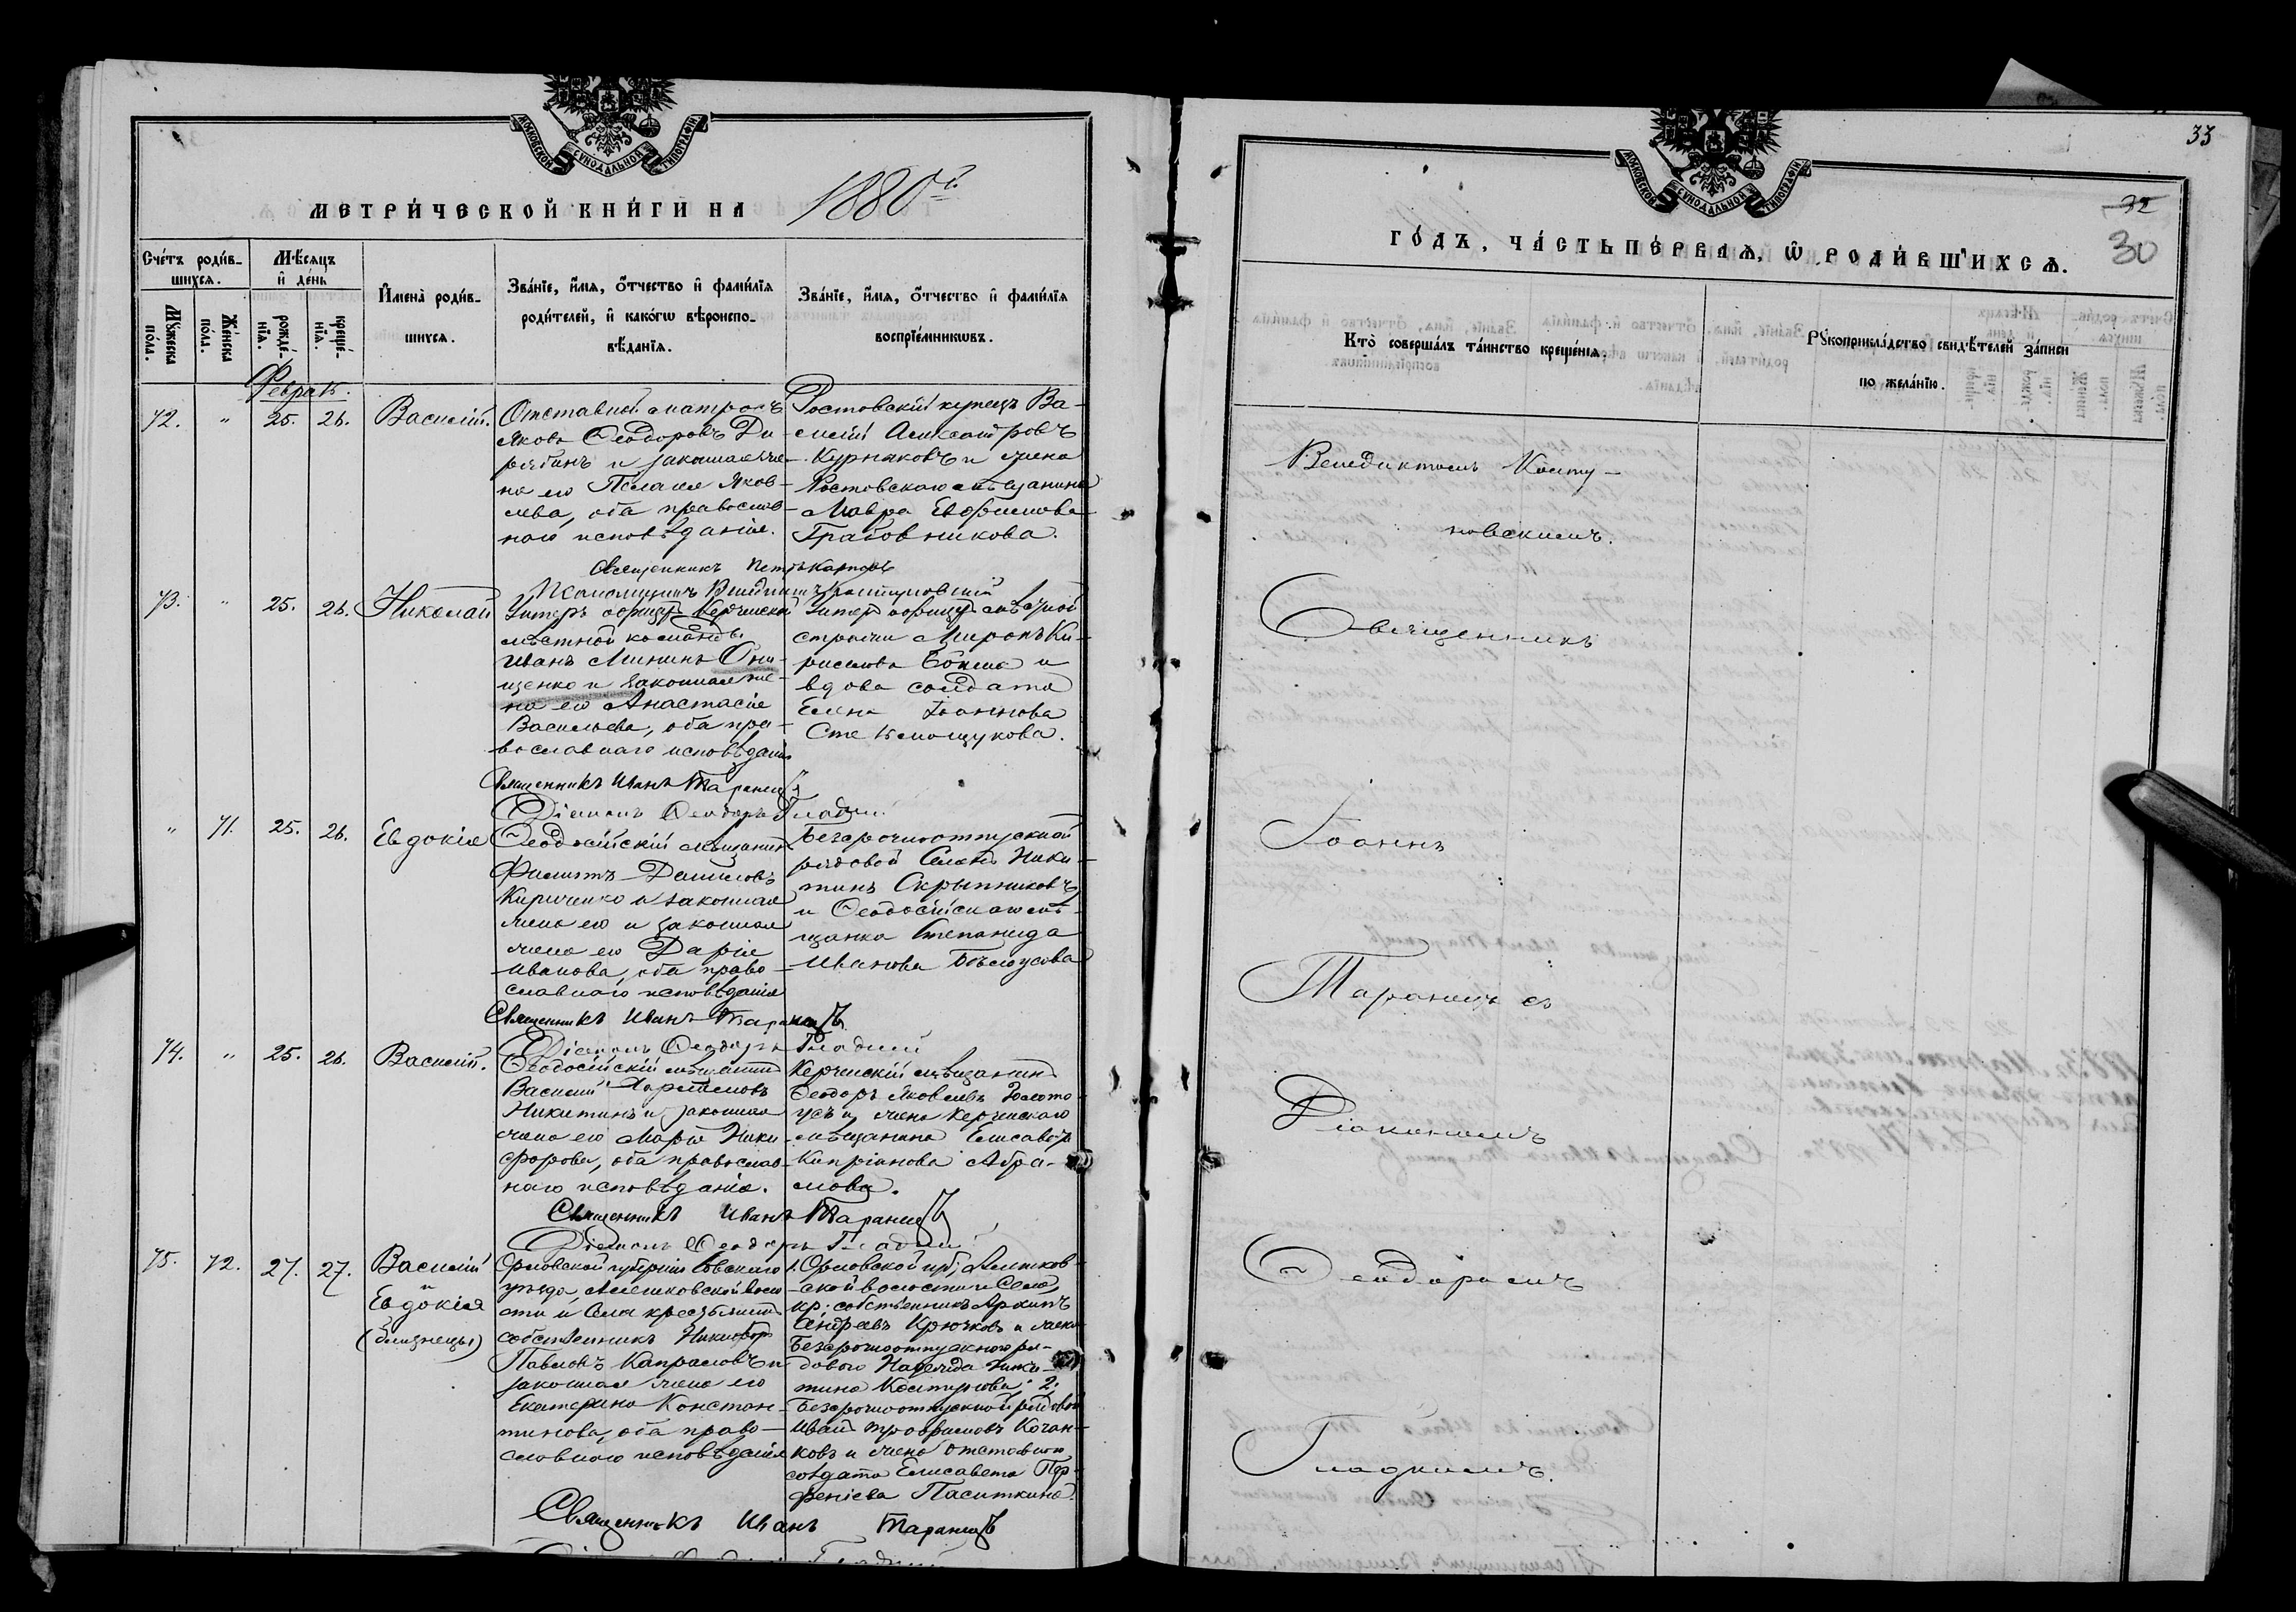 МОСКОВСКОЙ СѴНОДАЛЬНОЙ ТИПОГРАФІИ
МЕТРИ́ЧЕСКОЙ КНИ́ГИ НА 1880й
Сче́тъ роди́в-
шихсѧ.
Мѣ́сѧцъ
и҆ де́нь
Мꙋ́жеска
по́ла.
Же́нска
по́ла.
рожде́-
нїѧ.
креще́-
нїѧ.
И҆мена̀ роди́в-
шихсѧ.
Зва́нїе, и҆́мѧ, ѻ҆́тчество и҆ фами́лїѧ
роди́телей, и҆ како́гѡ вѣ̑роиспо-
вѣ́данїѧ.
Зва́нїе, и҆́мѧ, ѻ҆́тчество и҆ фами́лїѧ
воспрїе́мникѡвъ.
Февраль.
72. " 25. 26. Василій.
Отставной матросъ
Яковъ Ѳеодоровъ Ди
рябинъ и законная же-
на его Пелагія Яков-
лева, оба православ-
наго исповѣданія.
Ростовскій купецъ Ва-
силій Александровъ
Курнаковъ и жена
Ростовскаго мѣщанина
Мавра Евфимова
Грабовникова.
Священникъ Петръ
Псаломщикъ Венедиктъ Контуновскій
73. " 25. 26. Николай
Унтеръ офицеръ Керченской
мѣстной команды
Иванъ Мининъ Они-
щенко и законная же-
на его Анастасія
Васильева, оба пра-
вославнаго исповѣданія
Унтер офицер мѣстной
Миронъ Ки-
рилловъ и
вдова солдата
Елена Іоаннова
Стельмощукова.
Священникъ Иванъ Таранецъ
Діаконъ Ѳеодоръ Гладкій
" 71. 25. 26. Евдокія
Ѳеодосійскій мѣщанинъ
Филиппъ Даниловъ
Кириченко и законная
жена его и законная
жена его Дарія
Иванова, оба право-
славнаго исповѣданія
Безсрочноотпускной
рядовой Ники-
тинъ Скрыпниковъ
и Ѳеодосійская мѣ-
щанка Степанида
Иванова Бѣлоусова
Священникъ Иванъ Таранецъ
Діаконъ Ѳеодоръ Гладкій
74. " 25. 26. Василій.
Ѳеодосійскій мѣщанинъ
Василій Харитоновъ
Никитинъ и законная
жена его Марія Ники-
форова, оба православ-
наго исповѣданія.
Керченскій мѣщанинъ
Ѳеодоръ Яковлевъ Золото-
усъ и жена Керченскаго
мѣщанина Елисавета
Кипріанова Абра-
мова.
Священникъ Иванъ Таранецъ
Діаконъ Ѳеодоръ Гладкій
75. 72. 27. 27. Василій
и
Евдокія
(близнецы)
Орловской губерніи Сѣвскаго
уѣзда, Алешковской воло-
сти и села крестьянинъ
собственникъ Никифоръ
Павловъ Капраловъ и
законная жена его
Екатерина Констан-
тинова, оба право-
славнаго исповѣданія
1. Орловской губ., Алешков-
ской волости и села,
кр. собственникъ Архипъ
Андреевъ Крючковъ и жена
Безсрочноотпускного ря-
дового Надежда Ники-
тина 2.
Безсрочноотпускной рядовой
Иванъ Трофимовъ Кочан-
ковъ и жена отставного
солдата Елисавета Пар-
фенiева Паситкина.
Священникъ Иванъ Таранецъ
33
32
30
МОСКОВСКОЙ СѴНОДАЛЬНОЙ ТИПОГРАФІИ
ГО́ДЪ, ЧА́СТЬ ПЕ́РВАѦ, Ѡ҆ РОДИ́ВШИХСѦ.
Кто̀ соверша́лъ та́инство креще́нїѧ.
Рꙋкоприкла́дство свидѣ́телей за́писи
по жела́нїю.
Венедиктомъ Конту-
новскимъ.
Священникъ
Іоаннъ
Таранецъ съ
Діакономъ
Ѳеодоромъ
Гладкимъ.